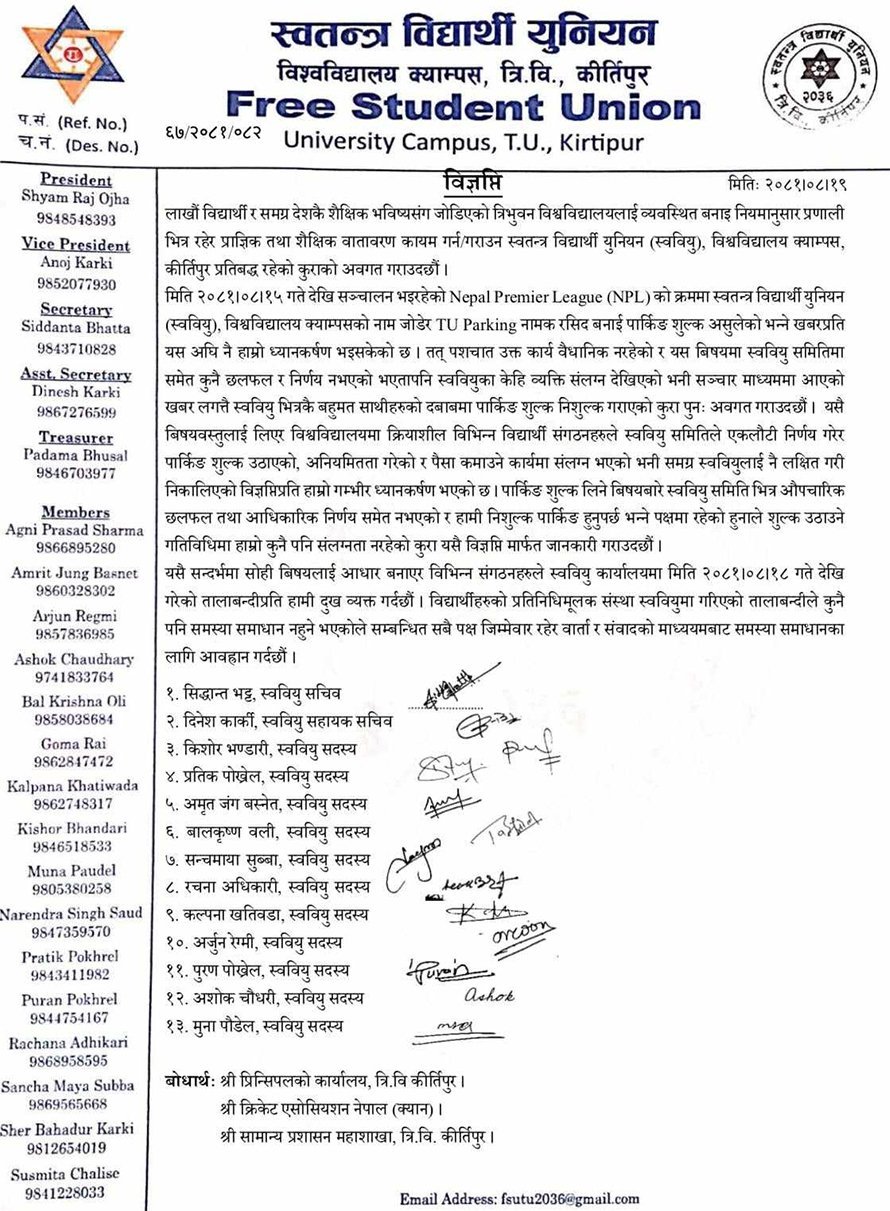 स्वतन्त्र विद्यार्थी युनियन
विश्वविद्यालय क्याम्पस, त्रि.वि., कीर्तिपुर
Free Student Union
University Campus, T.U., Kirtipur
स्वतन्त्र विद्यार्थी युनियन
२०३६
त्रि.वि. कीर्तिपुर
प.सं. (Ref. No.)
च.नं. (Des. No.)
६७/२०८१/०८२
President
Shyam Raj Ojha
9848548393
Vice President
Anoj Karki
9852077930
Secretary
Siddanta Bhatta
9843710828
Asst. Secretary
Dinesh Karki
9867276599
Treasurer
Padama Bhusal
9846703977
Members
Agni Prasad Sharma
9866895280
Amrit Jung Basnet
9860328302
Arjun Regmi
9857836985
Ashok Chaudhary
9741833764
Bal Krishna Oli
9858038684
Goma Rai
9862847472
Kalpana Khatiwada
9862748317
Kishor Bhandari
9846518533
Muna Paudel
9805380258
Narendra Singh Saud
9847359570
Pratik Pokhrel
9843411982
Puran Pokhrel
9844754167
Rachana Adhikari
9868958595
Sancha Maya Subba
9869565668
Sher Bahadur Karki
9812654019
Susmita Chalise
9841228033
विज्ञप्ति
मितिः २०८१।०८।१९
लाखौं विद्यार्थी र समग्र देशकै शैक्षिक भविष्यसंग जोडिएको त्रिभुवन विश्वविद्यालयलाई व्यवस्थित बनाइ नियमानुसार प्रणाली
भित्र रहेर प्राज्ञिक तथा शैक्षिक वातावरण कायम गर्न/गराउन स्वतन्त्र विद्यार्थी युनियन (स्ववियु), विश्वविद्यालय क्याम्पस,
कीर्तिपुर प्रतिबद्ध रहेको कुराको अवगत गराउदछौं ।
मिति २०८१।०८।१५ गते देखि सञ्चालन भइरहेको Nepal Premier League (NPL) को क्रममा स्वतन्त्र विद्यार्थी युनियन
(स्ववियु), विश्वविद्यालय क्याम्पसको नाम जोडेर TU Parking नामक रसिद बनाई पार्किङ शुल्क असुलेको भन्ने खबरप्रति
यस अघि नै हाम्रो ध्यानकर्षण भइसकेको छ । तत् पशचात उक्त कार्य वैधानिक नरहेको र यस बिषयमा स्ववियु समितिमा
समेत कुनै छलफल र निर्णय नभएको भएतापनि स्ववियुका केहि व्यक्ति संलग्न देखिएको भनी सञ्चार माध्यममा आएको
खबर लगत्तै स्ववियु भित्रकै बहुमत साथीहरुको दबाबमा पार्किङ शुल्क निशुल्क गराएको कुरा पुनः अवगत गराउदछौं । यसै
बिषयवस्तुलाई लिएर विश्वविद्यालयमा क्रियाशील विभिन्न विद्यार्थी संगठनहरुले स्ववियु समितिले एकलौटी निर्णय गरेर
पार्किङ शुल्क उठाएको, अनियमितता गरेको र पैसा कमाउने कार्यमा संलग्न भएको भनी समग्र स्ववियुलाई नै लक्षित गरी
निकालिएको विज्ञप्तिप्रति हाम्रो गम्भीर ध्यानकर्षण भएको छ । पार्किङ शुल्क लिने बिषयबारे स्ववियु समिति भित्र औपचारिक
छलफल तथा आधिकारिक निर्णय समेत नभएको र हामी निशुल्क पार्किङ हुनुपर्छ भन्ने पक्षमा रहेको हुनाले शुल्क उठाउने
गतिविधिमा हाम्रो कुनै पनि संलग्नता नरहेको कुरा यसै विज्ञप्ति मार्फत जानकारी गराउदछौं ।
यसै सन्दर्भमा सोही बिषयलाई आधार बनाएर विभिन्न संगठनहरुले स्ववियु कार्यालयमा मिति २०८१।०८।१८ गते देखि
गरेको तालाबन्दीप्रति हामी दुख व्यक्त गर्दछौं । विद्यार्थीहरुको प्रतिनिधिमूलक संस्था स्ववियुमा गरिएको तालाबन्दीले कुनै
पनि समस्या समाधान नहुने भएकोले सम्बन्धित सबै पक्ष जिम्मेवार रहेर वार्ता र संवादको माध्ययमबाट समस्या समाधानका
लागि आवह्रान गर्दछौं ।
१. सिद्धान्त भट्ट, स्ववियु सचिव
२. दिनेश कार्की, स्ववियु सहायक सचिव
३. किशोर भण्डारी, स्ववियु सदस्य
४. प्रतिक पोख्रेल, स्ववियु सदस्य
५. अमृत जंग बस्नेत, स्ववियु सदस्य
६. बालकृष्ण वली, स्ववियु सदस्य
७. सन्चमाया सुब्बा, स्ववियु सदस्य
८. रचना अधिकारी, स्ववियु सदस्य
९. कल्पना खतिवडा, स्ववियु सदस्य
१०. अर्जुन रेग्मी, स्ववियु सदस्य
११. पुरण पोख्रेल, स्ववियु सदस्य
Puran
१२. अशोक चौधरी, स्ववियु सदस्य
Ashok
१३. मुना पौडेल, स्ववियु सदस्य
बोधार्थः श्री प्रिन्सिपलको कार्यालय, त्रि.वि कीर्तिपुर ।
श्री क्रिकेट एसोसियशन नेपाल (क्यान) ।
श्री सामान्य प्रशासन महाशाखा, त्रि.वि. कीर्तिपुर ।
Email Address: fsutu2036@gmail.com